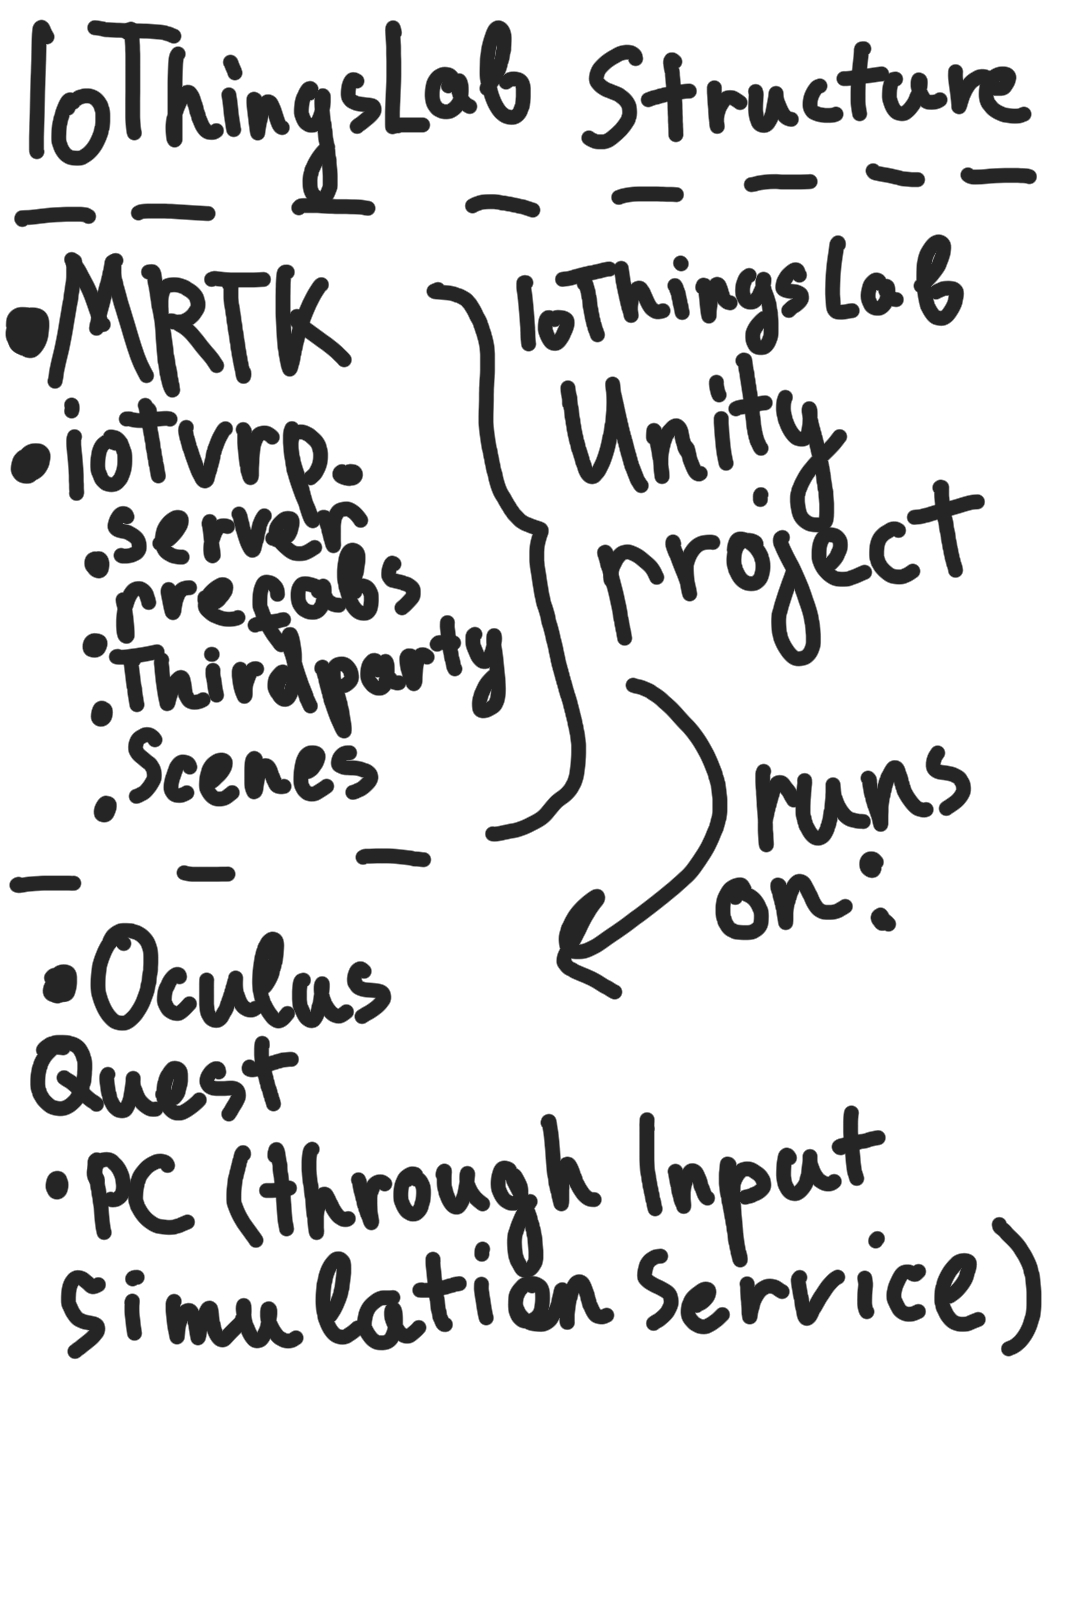 IoThingsLab Structure
• MRTK
• iotvrp-
server
• prefabs
• Thirdparty
• Scenes
IoThingsLab
Unity
project
runs
on:
• Oculus
Quest
• PC (through Input
Simulation Service)